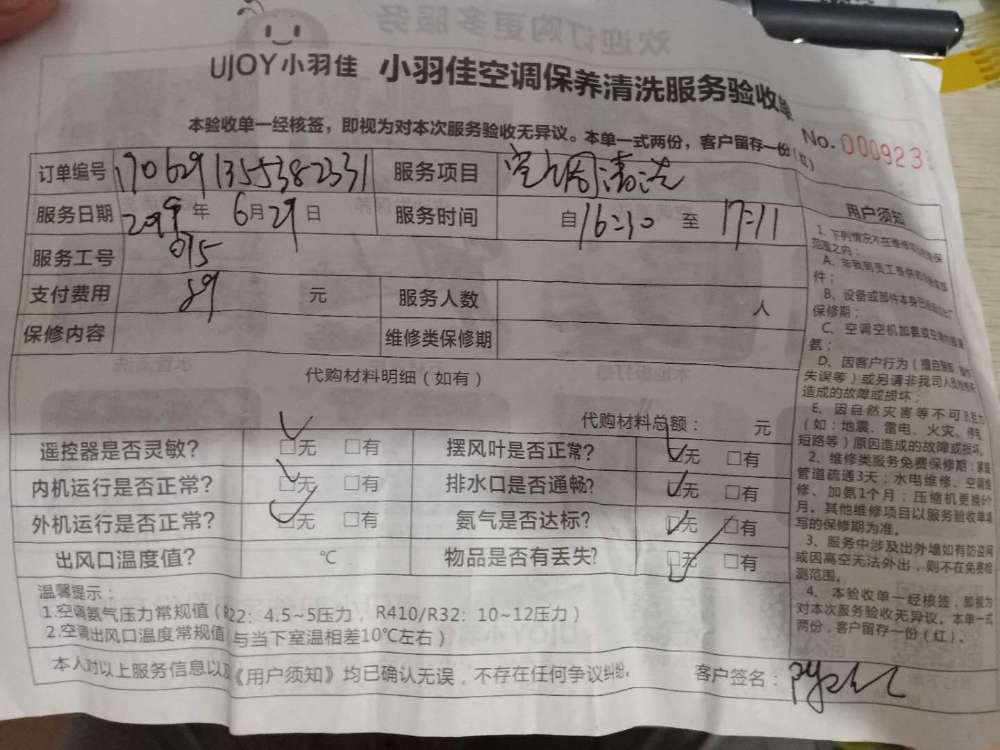 欢迎订购更多服务
UJOY小羽佳 小羽佳空调保养清洗服务验收单
本验收单一经核签，即视为对本次服务验收无异议。本单一式两份，客户留存一份(红)
No. 000923
订单编号 1706291355382331 服务项目 空调清洗
服务日期 年 6月29日 服务时间 自16:10 至 17:11
服务工号 015
支付费用 89 元 服务人数 人
保修内容 维修类保修期
代购材料明细（如有）
代购材料总额： 元
遥控器是否灵敏? □无 □有 摆风叶是否正常? □无 □有
内机运行是否正常? □无 □有 排水口是否通畅? □无 □有
外机运行是否正常? □无 □有 氨气是否达标? □无 □有
出风口温度值? ℃ 物品是否有丢失? □无 □有
温馨提示：
1.空调氨气压力常规值（R22：4.5~5压力，R410/R32：10~12压力）
2.空调出风口温度常规值（与当下室温相差10℃左右）
本人对以上服务信息以及《用户须知》均已确认无误，不存在任何争议纠纷。 客户签名：
用户须知
1、下列情况不在维修
范围之内：
A、非我司员工提供
件；
B、设备或部件本身已
保修期；
C、空调空机加氨或
氨；
D、因客户行为（擅自
失误等）或另请非我司人员
造成的故障或损坏；
E、因自然灾害等不可抗
（如：地震、雷电、火灾、停电
短路等）原因造成的故障或损坏。
2、维修类服务免费保修期：家庭
管道疏通3天；水电维修、空调维
修、加氨1个月；压缩机更换6个
月。其他维修项目以服务验收单填
写的保修期为准。
3、服务中涉及出外墙如有防盗网
或因高空无法外出，则不在免费检
测范围。
4、本验收单一经核签，即视为
对本次服务验收无异议。本单一式
两份，客户留存一份（红）。